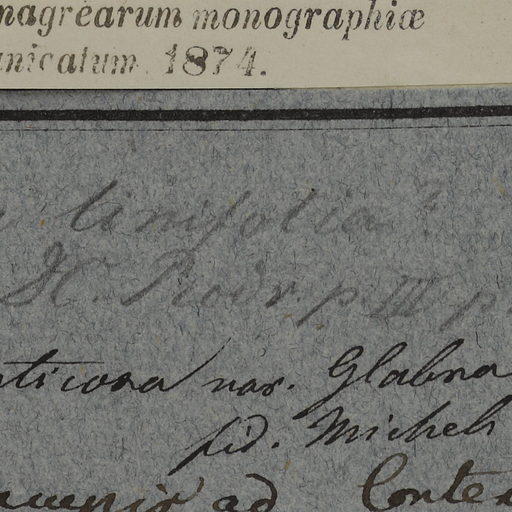 nagrearum monographiæ
unicatum 1874.
linifolia?
DC. Prodr. p. III p.
nticosa var. Glabra
fid. Micheli
ad Conte